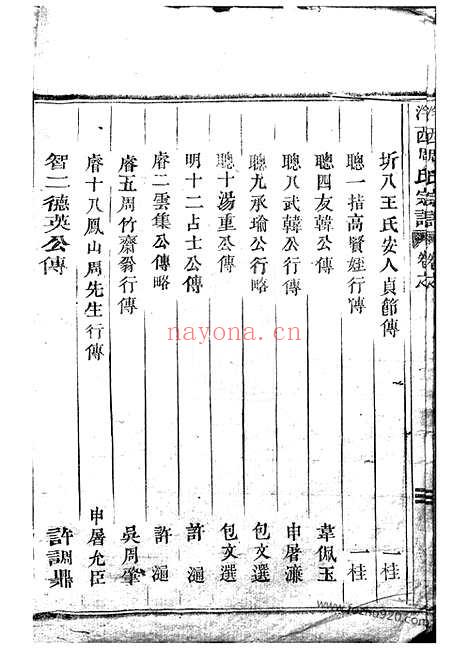 西周氏宗譜
三
圻八王氏安人貞節傳 一桂
聰一搢高賢姪行傳 一桂
聰四友韓公傳 韋佩玉
聰八武韓公行傳 申屠濂
聰九承瑜公行略 包文選
聰十湯重公傳 包文選
明十二占士公傳 許滬
睿二雲集公傳略 許滬
睿五周竹齋翁行傳 吳周肇
睿十八鳳山周先生行傳 申屠允臣
智二德英公傳 許調鼎
nayona.cn